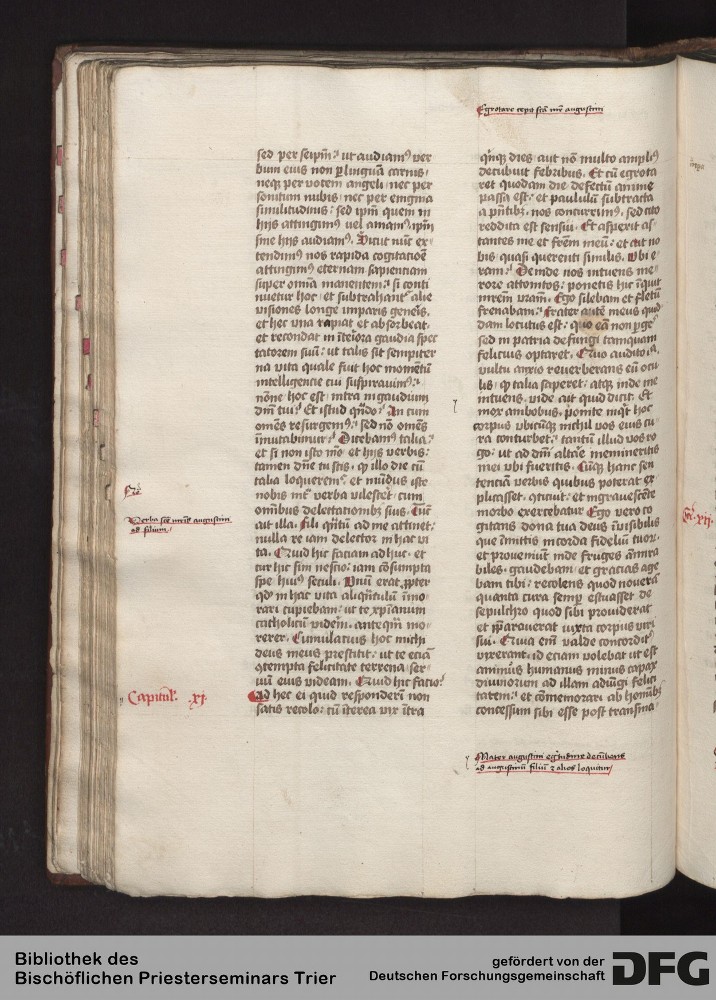 Egrotare cepit sancta mater augustini
sed per seipm̄: ut audiamꝰ ver
bum eius non ꝑ linguā carnis/
neqꝫ per vocem angeli/ nec per
sonitum nubis/ nec per enigma
similitudinis: sed ipm̄ quem in
hijs attingimꝰ vel amamꝰ/ ipm̄
sine hijs audiamꝰ. Sicut nūc ex
tendimꝰ nos rapida cogitatiōe
attingimꝰ eternam sapientiam
super omīa manentem: si conti
nuetur hoc/ et subtrahantᷣ alie
visiones longe imparis generis.
et hec vna rapiat et absorbeat.
et recondat in īteriora gaudia spec
tatorem suū: ut talis sit sempiter
na vita quale fuit hoc momētū
intelligencie cui suspirauimꝰ:
nōne hoc est/ intra in gaudium
dn̄i tui: Et istud qn̄do: An cum
omēs resurgemꝰ: sed nō omēs
īmutabimur: Dicebamꝰ talia:
et si non isto mō/ et hijs verbis:
tamen dn̄e tu scis. ꝙ illo die cū
talia loqueremᷣ. et mūdus iste
nobis int̄ verba vilesceret cum
om̄ibus delectationibꝫ suis. Tūc
ait illa. Fili q̄ntū ad me attinet:
nulla re iam delector in hac vi
ta. Quid hic faciam adhuc. et
cur hic sim nescio: iam cōsumpta
spe huiꝰ seculi. Vnū erat ꝓpter
qd̄ in hac vita aliq̄ntulū īmo
rari cupiebam: ut te xp̄ianum
catholicū viderē. anteqm̄ mo
rerer. Cumulatius hoc michi
deus meus prestitit: ut te eciā
ꝯtempta felicitate terrena/ ser
uū eius videam. Quid hic facio:
Ad hec ei quid responderī non
satis recolo: cū īterea vix ītra
Verba sc̄e mr̄is augustini
ad filium/
Capitul. xj.
qūiqꝫ dies aut nō multo ampliꝰ
decubuit febribus. Et cū egrota
ret quodam die defectū anime
passa est: et paululū subtracta
a pn̄tibꝫ. nos concurrimꝰ. sed cito
reddita est sensui. Et aspexit as
tantes me et fr̄em meū: et ait no
bis quasi querenti similis. Vbi e
ram: Deinde nos intuens me
rore attonitos: ponetis hic inquit
mr̄em vr̄am. Ego silebam et fletū
frenabam: Frater autē meus quid
dam locutus est: quo eā non pege
sed in patria defungi tamquam
felicius optaret. Quo audito illa
vultu anxio reuerberans eū ocu
lis/ ꝙ talia saperet: atqꝫ inde me
intuens. vide ait quid dicit. Et
mox ambobus/ ponite inq̄t hoc
corpus vbicūqꝫ nichil vos eius cu
ra conturbet: tantū illud vos ro
go: ut ad dn̄i altare memineritis
mei vbi fueritis. Cūqꝫ hanc sen
tenciam verbis quibus poterat ex
plicasset. ꝯticuit: et ingrauescēte
morbo exercebatur Ego vero co
gitans dona tua deus īuisibilis
que īmittis in corda fidelium tuorꝫ
et proueniūt inde fruges admira
biles. gaudebam/ et gracias age
bam tibi: recolens quod nouerā
quanta cura semꝑ estuasset de
sepulchro quod sibi prouiderat
et ꝑparauerat iuxta corpus viri
sui. Quia em̄ valde concorditᷣ
vixerant. id eciam volebat ut est
animus humanus minus capax
diuinorum ad illam adiūgi felici
tatem: et cōmemorari ab hominibꝫ
concessum sibi esse post transma
Mater augustini egritudine decūbens
ad augustinū filiū et alios loquitur/
Bibliothek des
Bischöflichen Priesterseminars Trier
gefördert von der
Deutschen Forschungsgemeinschaft
DFG